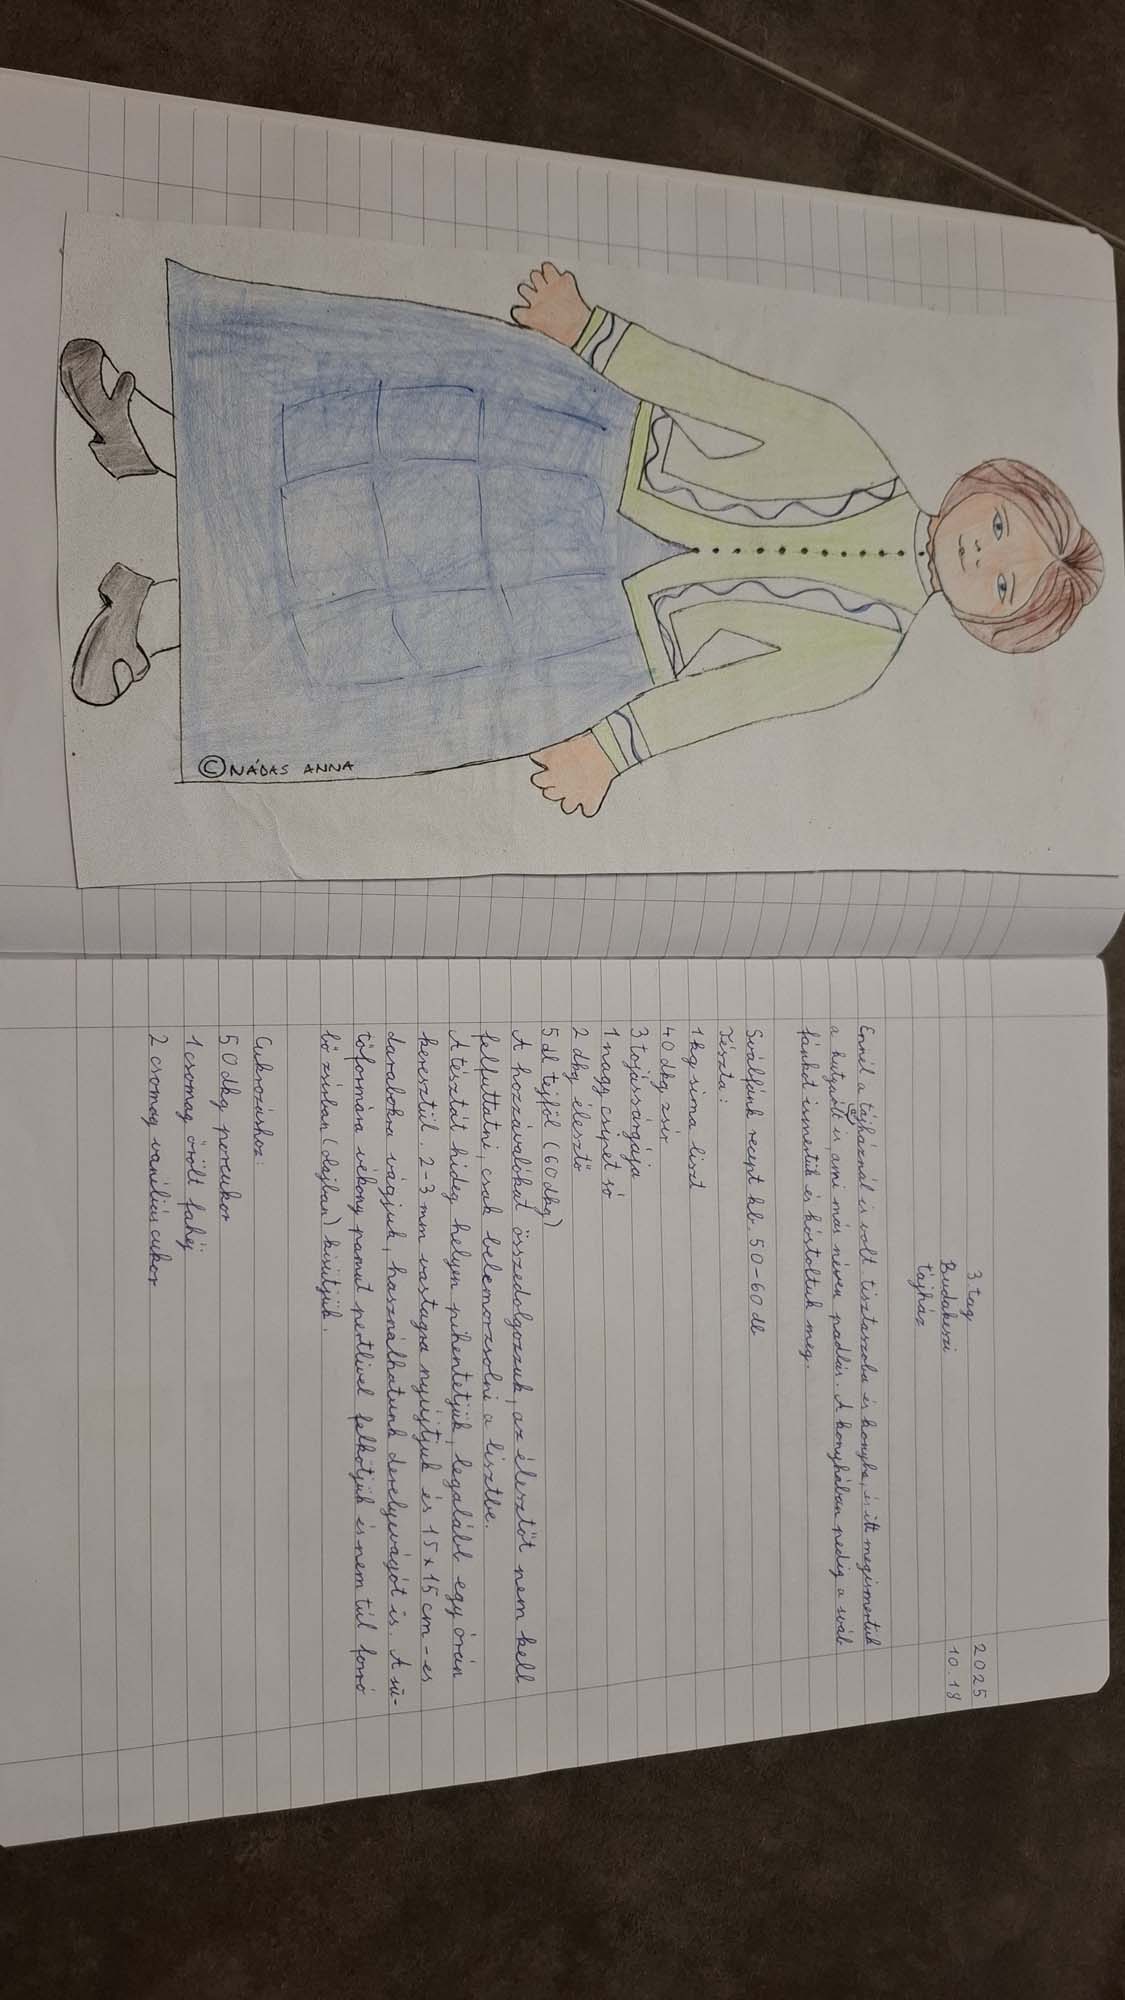 © NÁDAS ANNA
3. tag
2025
Budakeszi
10.18
tájház
Ennél a tájháznál is volt tisztaszoba és konyha, és itt megismertük
a hutyulit is, ami más néven padlás. A konyhában pedig a sváb
fánkot ismertük és kóstoltuk meg.
Svábfánk recept kb. 50-60 db
Tészta:
1 kg sima liszt
40 dkg zsír
3 tojássárgája
1 nagy csipet só
2 dkg élesztő
5 dl tejföl (60 dkg)
A hozzávalókat összedolgozzuk, az élesztőt nem kell
felfuttatni, csak belemorzsolni a lisztbe.
A tésztát hideg helyen pihentetjük, legalább egy órán
keresztül. 2-3 mm vastagra nyújtjuk és 15x15 cm-es
darabokra vágjuk, használhatunk derelyevágót is. A sü-
tőformára vékony pamut pertlivel felkötjük és nem túl forró
bő zsírban (olajban) kisütjük.
Cukrozáshoz:
50 dkg porcukor
1 csomag őrölt fahéj
2 csomag vaníliás cukor